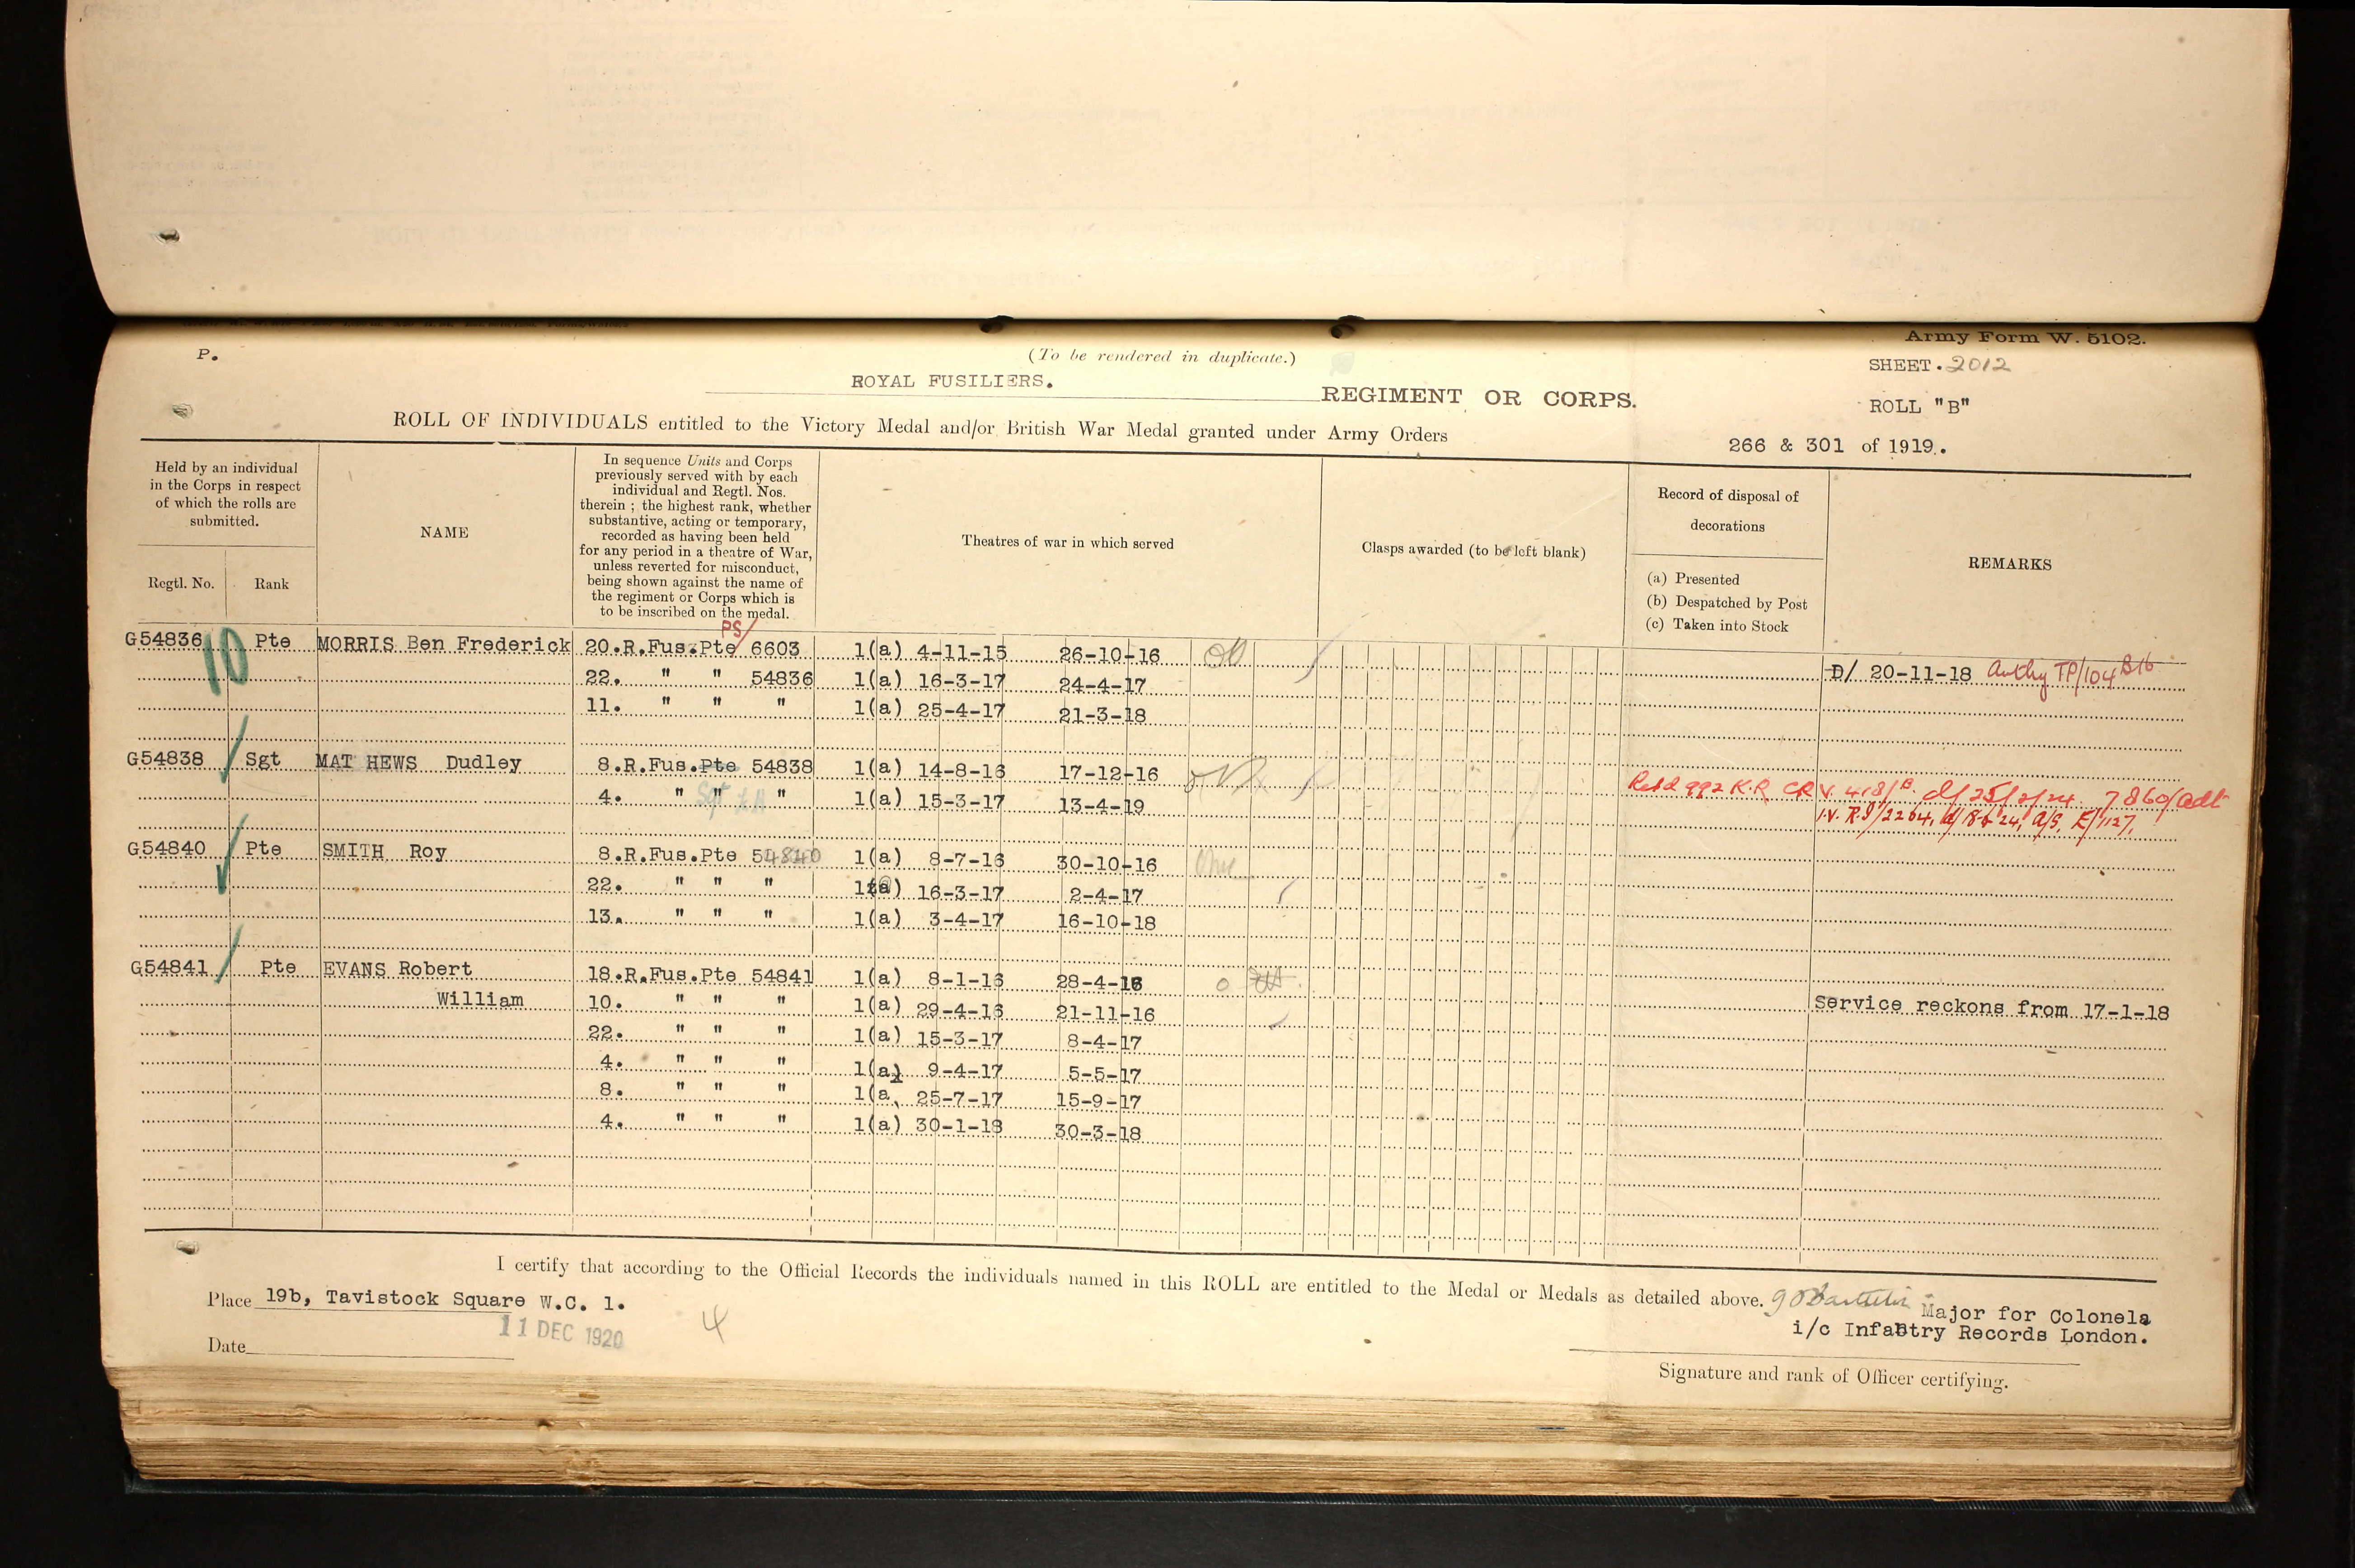 Army Form W. 5102.
P.
(To be rendered in duplicate.)
SHEET. 2012
ROYAL FUSILIERS. REGIMENT OR CORPS.
ROLL "B"
ROLL OF INDIVIDUALS entitled to the Victory Medal and/or British War Medal granted under Army Orders 266 & 301 of 1919.
Held by an individual
in the Corps in respect
of which the rolls are
submitted.
Regtl. No. Rank
NAME
In sequence Units and Corps
previously served with by each
individual and Regtl. Nos.
therein ; the highest rank, whether
substantive, acting or temporary,
recorded as having been held
for any period in a theatre of War,
unless reverted for misconduct,
being shown against the name of
the regiment or Corps which is
to be inscribed on the medal.
Theatres of war in which served
Clasps awarded (to be left blank)
Record of disposal of
decorations
(a) Presented
(b) Despatched by Post
(c) Taken into Stock
REMARKS
PS/
G54836 10 Pte MORRIS Ben Frederick 20.R.Fus.Pte 6603 1(a) 4-11-15 26-10-16
22. " " 54836 1(a) 16-3-17 24-4-17 D/ 20-11-18 Authy TP/104 B16
11. " " " 1(a) 25-4-17 21-3-18
G54838 Sgt MAT HEWS Dudley 8.R.Fus.Pte 54838 1(a) 14-8-16 17-12-16
Retd 992 K.R. CR V. 418/B. d/25/2/24. 7860/Adt
4. " Sgt " " 1(a) 15-3-17 13-4-19
I.V. R.S/2264, d/18-6-24, a/S, E/1127,
G54840 Pte SMITH Roy 8.R.Fus.Pte 54840 1(a) 8-7-16 30-10-16
22. " " " 1(a) 16-3-17 2-4-17
13. " " " 1(a) 3-4-17 16-10-18
G54841 Pte EVANS Robert 18.R.Fus.Pte 54841 1(a) 8-1-16 28-4-16
William 10. " " " 1(a) 29-4-16 21-11-16 Service reckons from 17-1-18
22. " " " 1(a) 15-3-17 8-4-17
4. " " " 1(a) 9-4-17 5-5-17
8. " " " 1(a 25-7-17 15-9-17
4. " " " 1(a) 30-1-18 30-3-18
I certify that according to the Official Records the individuals named in this ROLL are entitled to the Medal or Medals as detailed above.
Place 19b, Tavistock Square W.C. 1.
Major for Colonela
11 DEC 1920
4
i/c Infantry Records London.
Date
Signature and rank of Officer certifying.